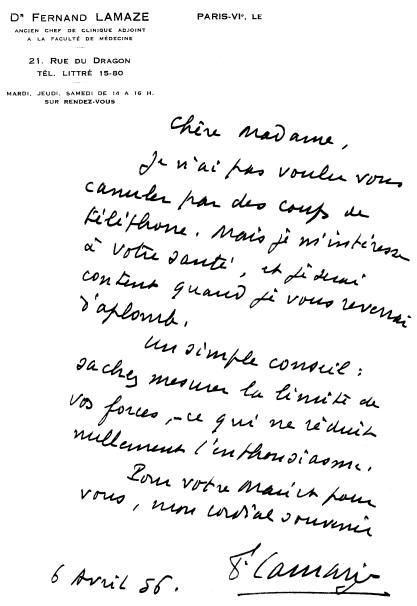 Dʳ FERNAND LAMAZE
ANCIEN CHEF DE CLINIQUE ADJOINT
A LA FACULTÉ DE MÉDECINE
21. RUE DU DRAGON
TÉL. LITTRÉ 15-80
MARDI, JEUDI, SAMEDI DE 14 A 16 H.
SUR RENDEZ-VOUS
PARIS-VIᵉ, LE
Chère Madame,
Je n'ai pas voulu vous
canuler par des coups de
téléphone. Mais je m'intéresse
à votre santé, et je serai
content quand je vous reverrai
d'aplomb.
Un simple conseil :
sachez mesurer la limite de
vos forces, - ce qui ne réduit
nullement l'enthousiasme.
Pour votre Mari et pour
vous, mon cordial souvenir
F. Lamaze
6 Avril 56.